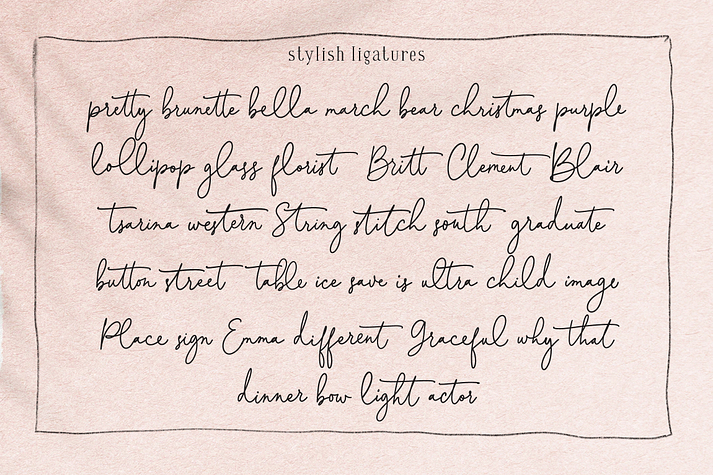 stylish ligatures
pretty brunette bella march bear christmas purple
lollipop glass florist Britt Clement Blair
tsarina western String stitch south graduate
button street table ice save is ultra child image
Place sign Emma different Graceful why that
dinner bow light actor